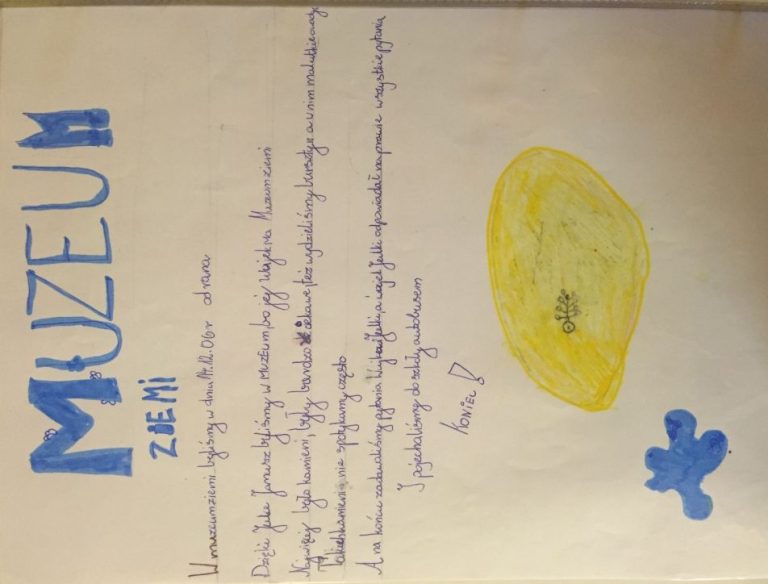 MUZEUM
ZIEMI
W muzeumziemi byliśmy w dniu 14.12.06r odrana
Dzięki Julce Janusz byliśmy w Muzeum, bo jej Wujek ma Muzeumziemi
Najwięcej było kamieni, były bardzo ciekawe, też widzieliśmy bursztyn a w nim malutkie
Takichkamieni nie spotykamy często
A na końcu zadawaliśmy pytania Wujkowi Julki, a wujek Julki odpowiadał na prawie wszystkie pytania
I pojechaliśmy do szkoły autobusem
KONIEC